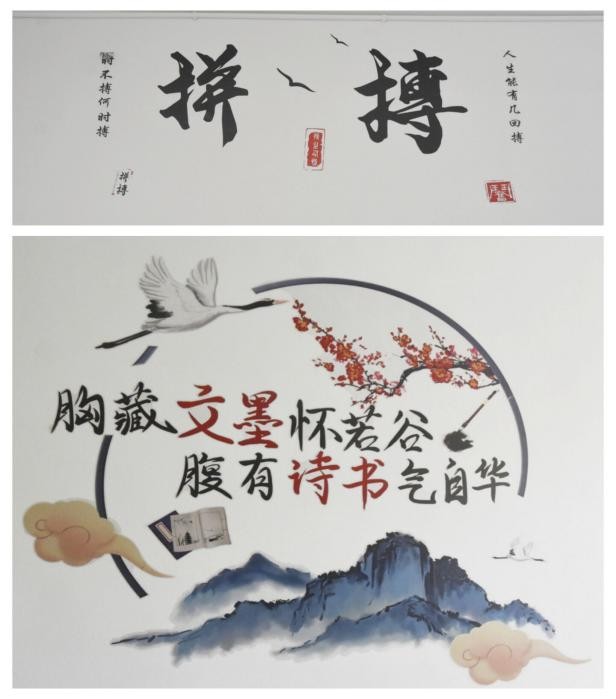 拼搏
人生能有几回搏
不搏何时搏
拼搏
胸藏文墨怀若谷
腹有诗书气自华